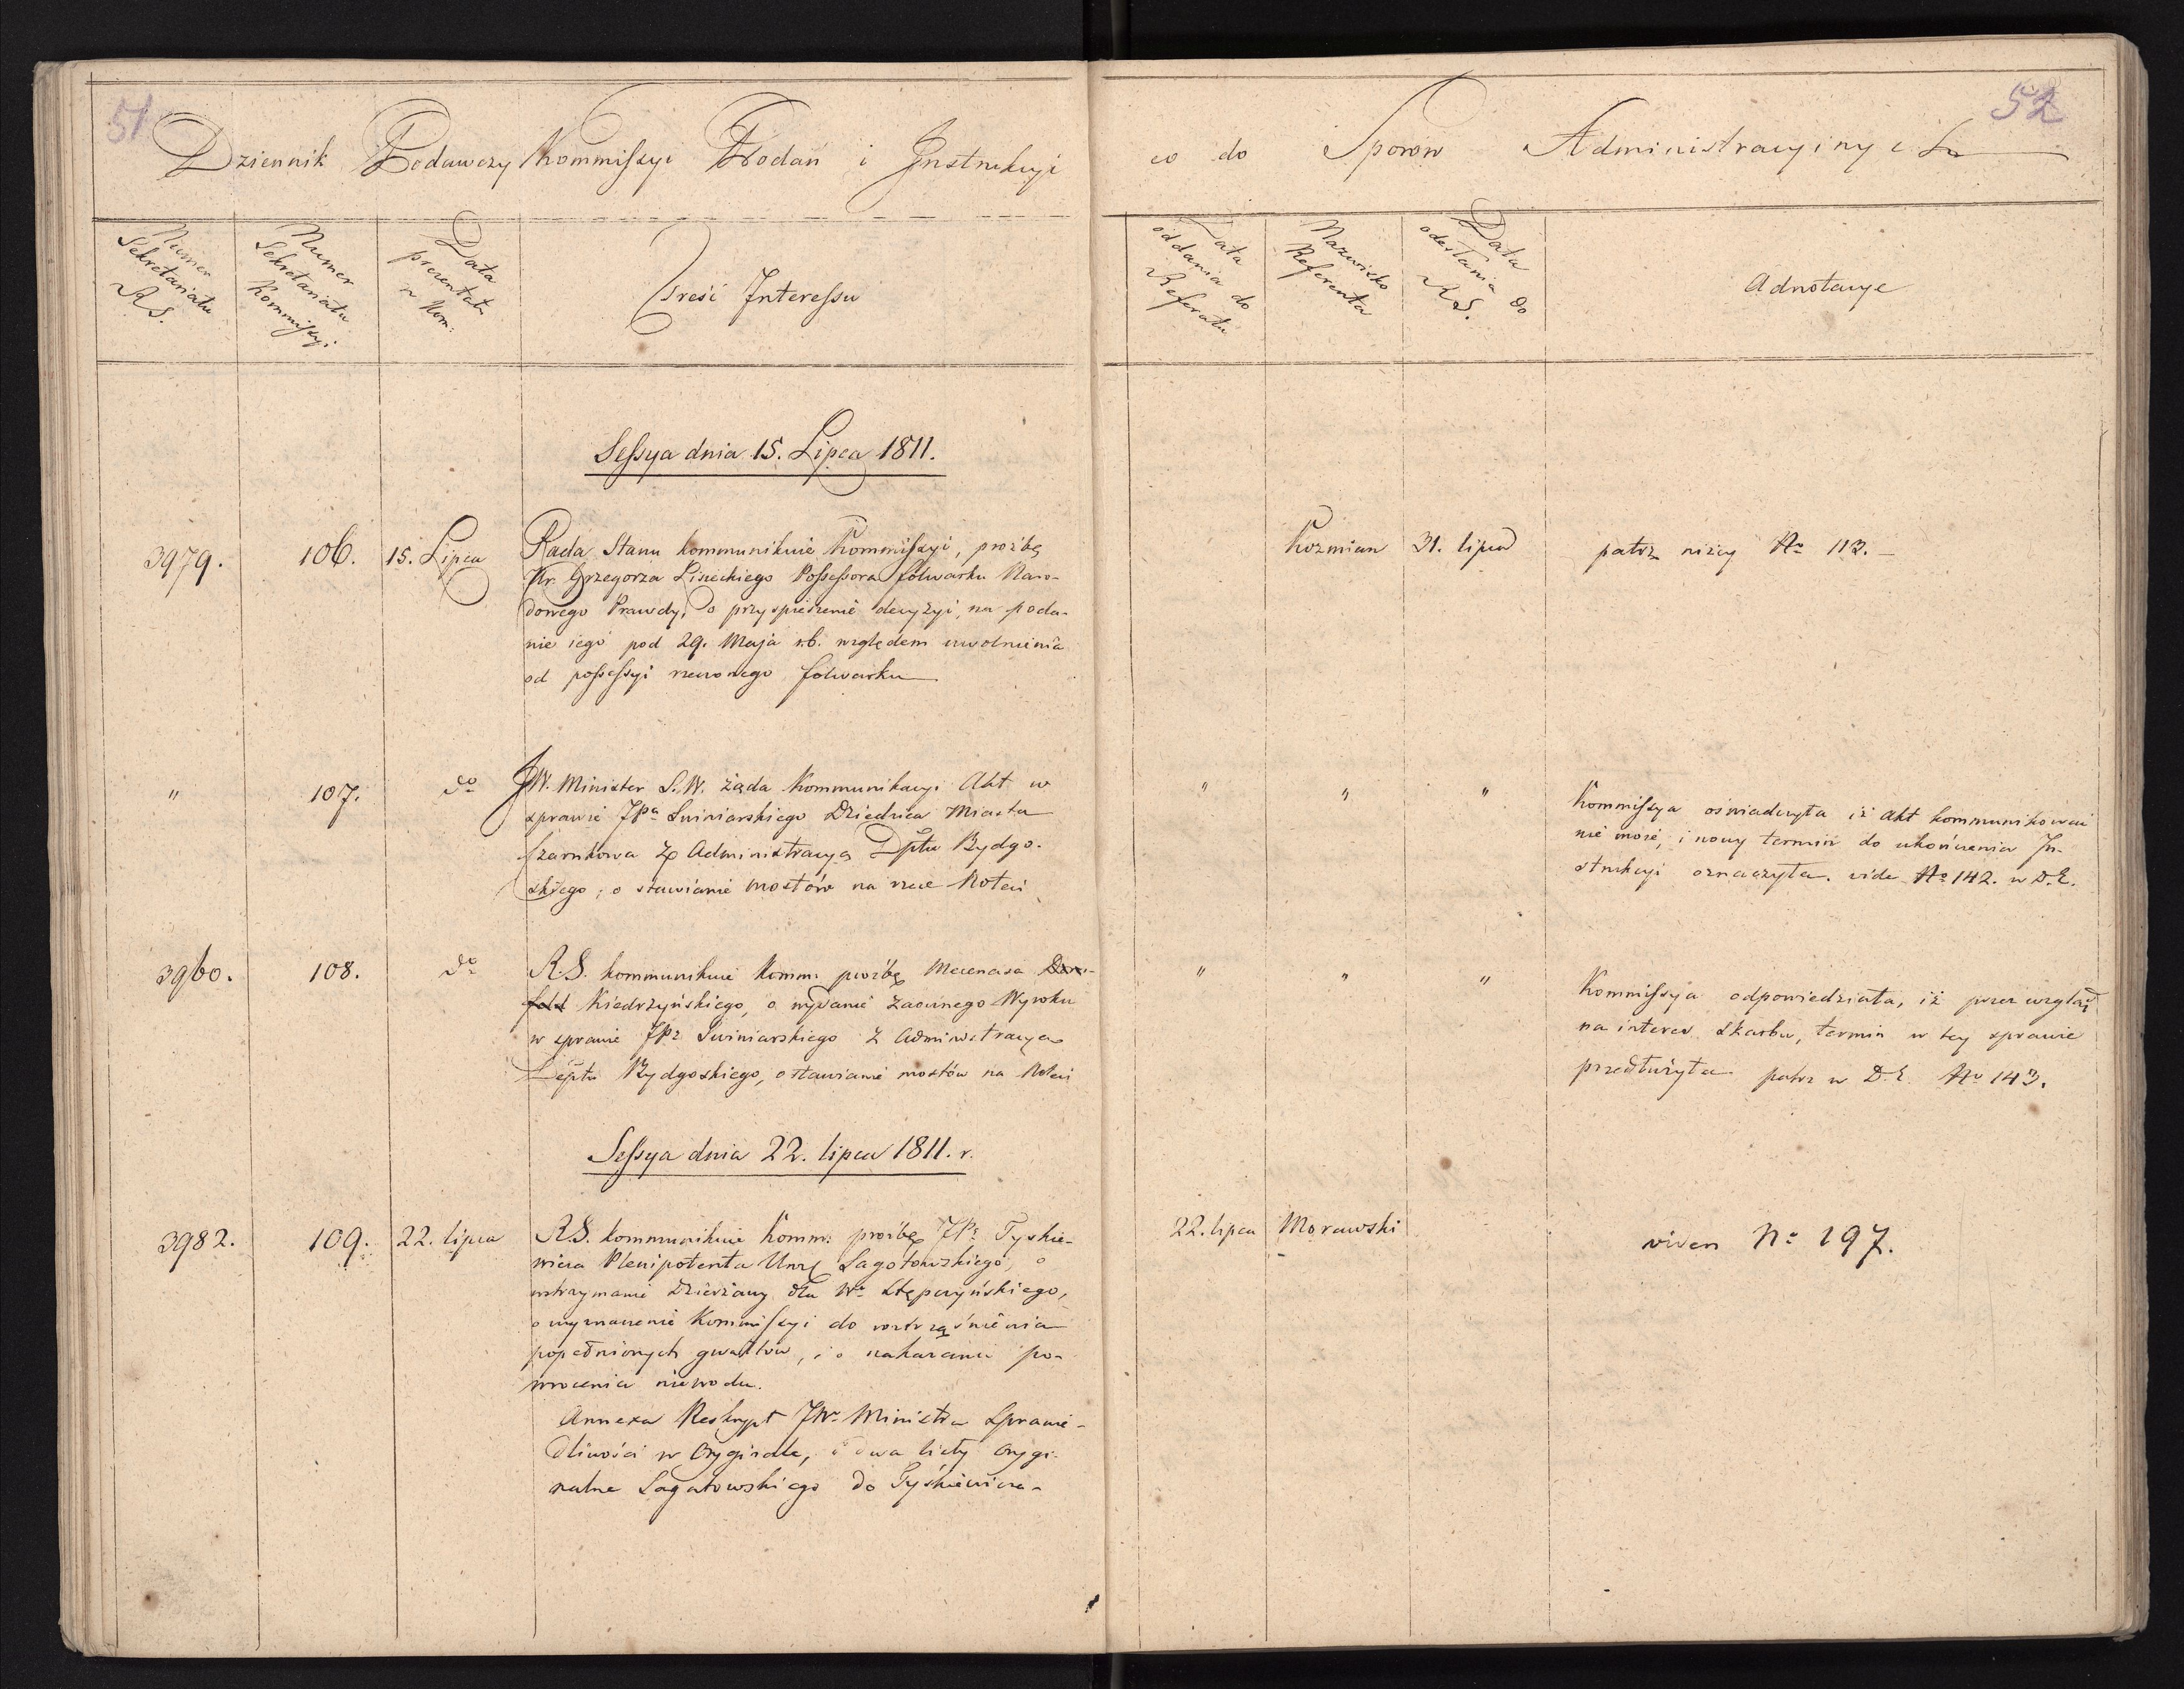 51
52
Dziennik Podawczy Kommissyi Podań i Instrukcyi co do Sporow Administracyinych
Numer Sekretariatu R.S.
Numer Sekretariatu Kommissyi
Data prezentat: w Kom:
Treść Interessu
Data oddania do Referatu
Nazwisko Referenta
Data odesłania do R.S.
Adnotacye
Sessya dnia 15. Lipca 1811.
3979. 106. 15. Lipca
Rada Stanu kommunikuie Kommissyi, prozbę
Ur. Grzegorza Lisieckiego Possessora folwarku Naro-
dowego Prawdy, o przyspieszenie decyzyi, na poda-
nie iego pod 29. Maja r.b. względem uwolnienia
od possessyi rzeczonego folwarku
Kozmian 31. lipca patrz niżey No 113.
" 107. do
JW. Minister S.W. żąda Kommunikacyi Akt w
sprawie JPa Swiniarskiego Dziedzica Miasta
Czarnkowa z Administracyą Dptu Bydgo-
skiego, o stawianie mostów na rzece Noteci
" " "
Kommissya oświadczyła iż akt kommunikować
nie może, i nowy termin do ukończenia In-
strukcyi oznaczyła. vide No 142. w D.E.
3960. 108. do
R.S. kommunikuie Komm: prozbę Mecenasa
Kiedrzyńskiego, o wydanie zaocznego Wyroku
w sprawie JPa Swiniarskiego z Administracyą
Deptu Bydgoskiego, o stawianie mostów na Noteci
" " "
Kommissya odpowiedziała, iż przez wzgląd
na interes Skarbu, termin w tey sprawie
przedłużyła patrz w D.E. No 143.
Sessya dnia 22. lipca 1811. r.
3982. 109. 22. lipca
R.S. kommunikuie Komm: prozbę JPa Tyszkie-
wicza Plenipotenta Sagatowskiego, o
wstrzymanie Dzierżawy dla Wo Stępczyńskiego,
o wyznaczenie Kommissyi do roztrząśnienia
popełnionych gwałtów, i o nakazanie po-
wrocenia niewodu.
Annexa Reskrypt JWo Ministra Sprawie-
dliwości w Orygirale, i dwa listy orygi-
nalne Sagatowskiego do Tyszkiewicza
22. lipca Morawski
No 197.